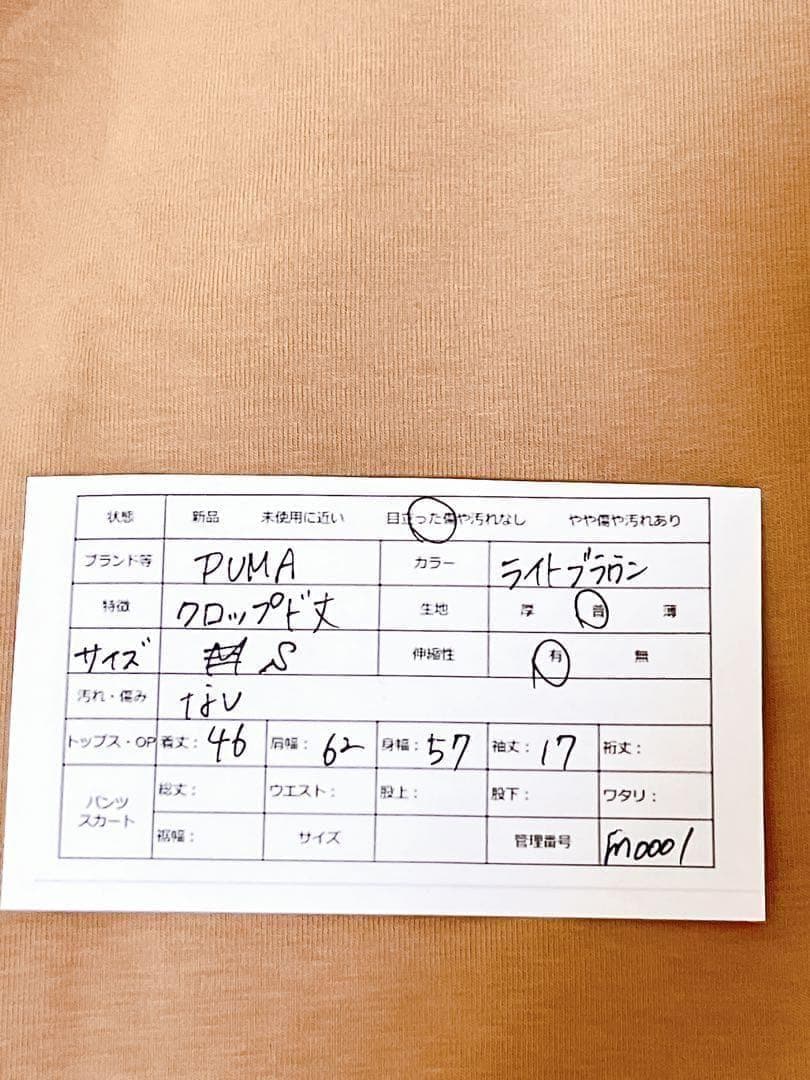 状態 新品 未使用に近い 目立った傷や汚れなし やや傷や汚れあり
ブランド等 PUMA カラー ライトブラウン
特徴 クロップド丈 生地 厚 普 薄
サイズ S 伸縮性 有 無
汚れ・傷み なし
トップス・OP 着丈: 46 肩幅: 62 身幅: 57 袖丈: 17 裄丈:
パンツ スカート 総丈: ウエスト: 股上: 股下: ワタリ:
裾幅: サイズ 管理番号 m0001